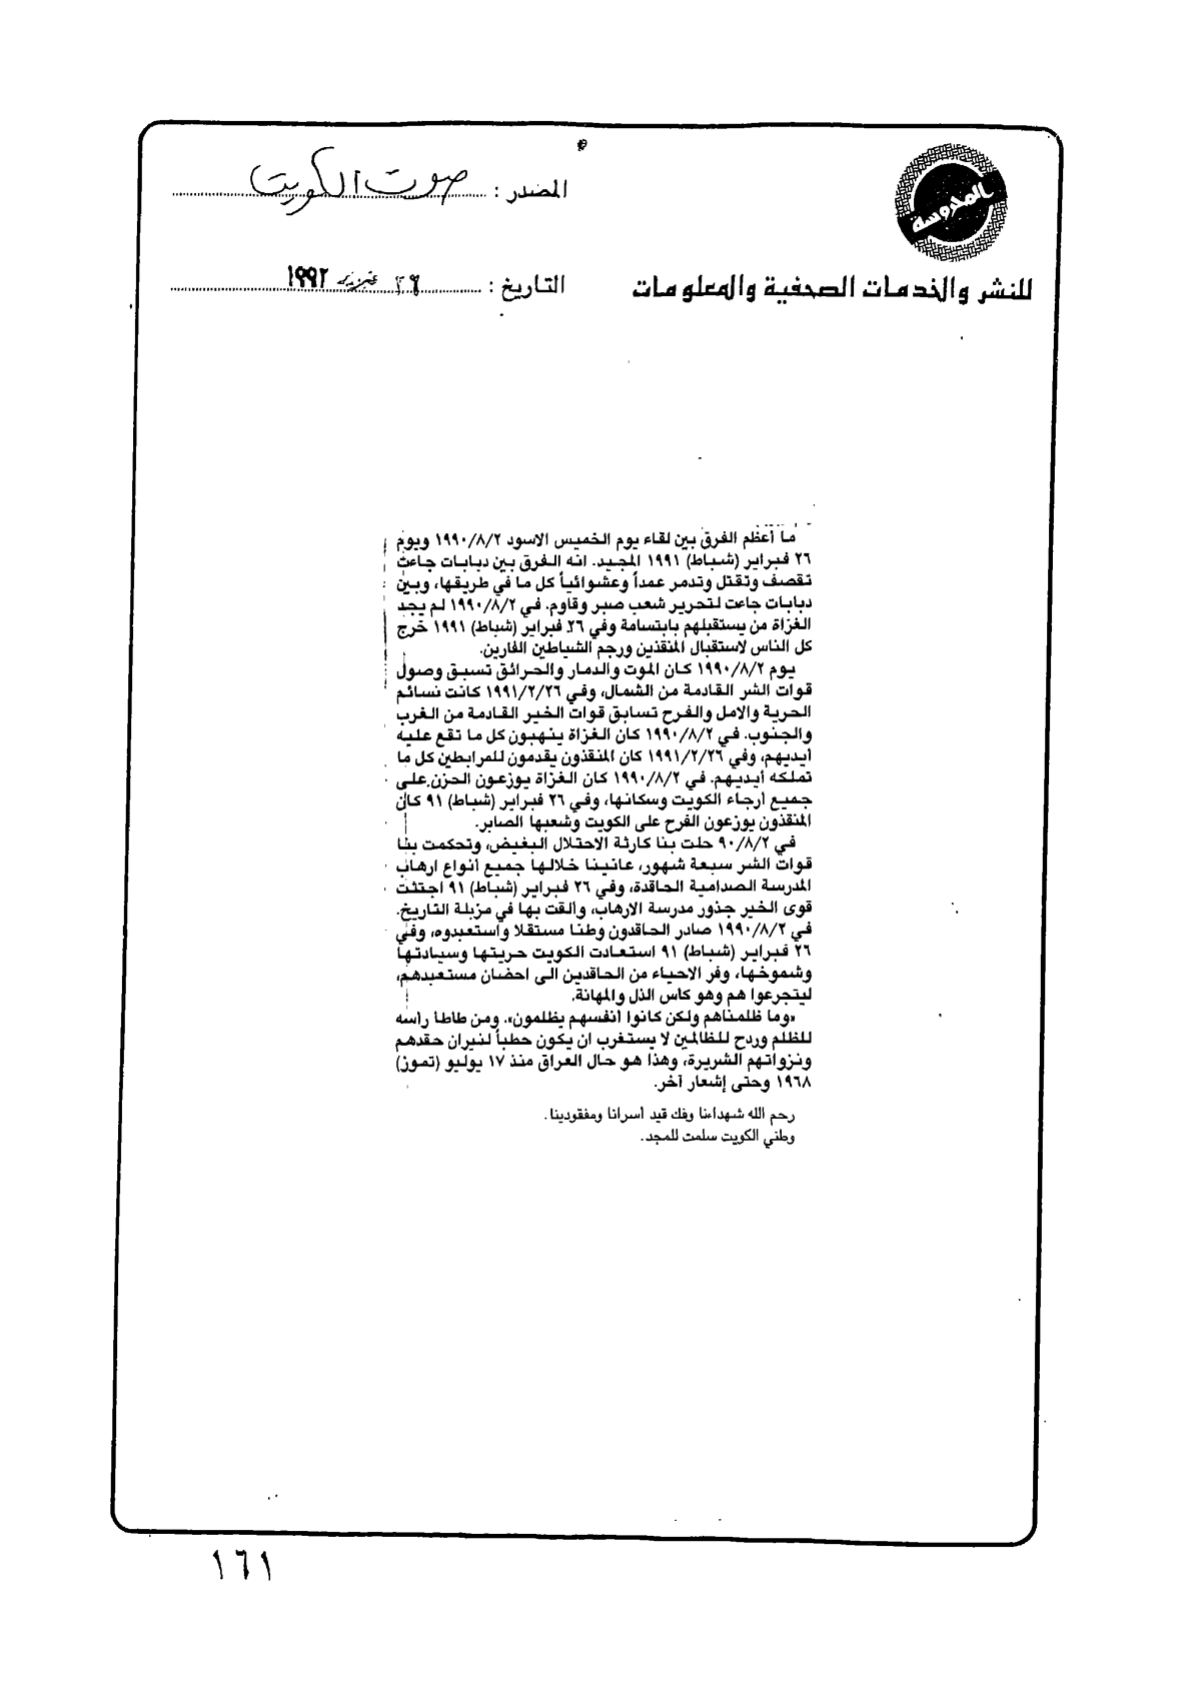 المدوسة
المصدر : صوت الكويت
للنشر والخدمات الصحفية والمعلومات
التاريخ : ٢٦ فبراير ١٩٩٢
ما أعظم الفرق بين لقاء يوم الخميس الاسود ١٩٩٠/٨/٢ ويوم
٢٦ فبراير (شباط) ١٩٩١ المجيد. انه الفرق بين دبابات جاءت
تقصف وتقتل وتدمر عمداً وعشوائياً كل ما في طريقها، وبين
دبابات جاءت لتحرير شعب صبر وقاوم. في ١٩٩٠/٨/٢ لم يجد
الغزاة من يستقبلهم بابتسامة وفي ٢٦ فبراير (شباط) ١٩٩١ خرج
كل الناس لاستقبال المنقذين ورجم الشياطين الفارين.
يوم ١٩٩٠/٨/٢ كان الموت والدمار والحرائق تسبق وصول
قوات الشر القادمة من الشمال، وفي ١٩٩١/٢/٢٦ كانت نسائم
الحرية والامل والفرح تسابق قوات الخير القادمة من الغرب
والجنوب. في ١٩٩٠/٨/٢ كان الغزاة ينهبون كل ما تقع عليه
أيديهم، وفي ١٩٩١/٢/٢٦ كان المنقذون يقدمون للمرابطين كل ما
تملكه أيديهم. في ١٩٩٠/٨/٢ كان الغزاة يوزعون الحزن على
جميع أرجاء الكويت وسكانها، وفي ٢٦ فبراير (شباط) ٩١ كان
المنقذون يوزعون الفرح على الكويت وشعبها الصابر.
في ٩٠/٨/٢ حلت بنا كارثة الاحتلال البغيض، وتحكمت بنا
قوات الشر سبعة شهور، عانينا خلالها جميع أنواع ارهاب
المدرسة الصدامية الحاقدة، وفي ٢٦ فبراير (شباط) ٩١ اجتثت
قوى الخير جذور مدرسة الارهاب، والقت بها في مزبلة التاريخ.
في ١٩٩٠/٨/٢ صادر الحاقدون وطنا مستقلا واستعبدوه، وفي
٢٦ فبراير (شباط) ٩١ استعادت الكويت حريتها وسيادتها
وشموخها، وفر الاحياء من الحاقدين الى احضان مستعبدهم،
ليتجرعوا هم وهو كاس الذل والمهانة.
«وما ظلمناهم ولكن كانوا أنفسهم يظلمون». ومن طاطا رأسه
للظلم وردح للظالمين لا يستغرب ان يكون حطباً لنيران حقدهم
ونزواتهم الشريرة، وهذا هو حال العراق منذ ١٧ يوليو (تموز)
١٩٦٨ وحتى إشعار آخر.
رحم الله شهداءنا وفك قيد أسرانا ومفقودينا.
وطني الكويت سلمت للمجد.
١٦١